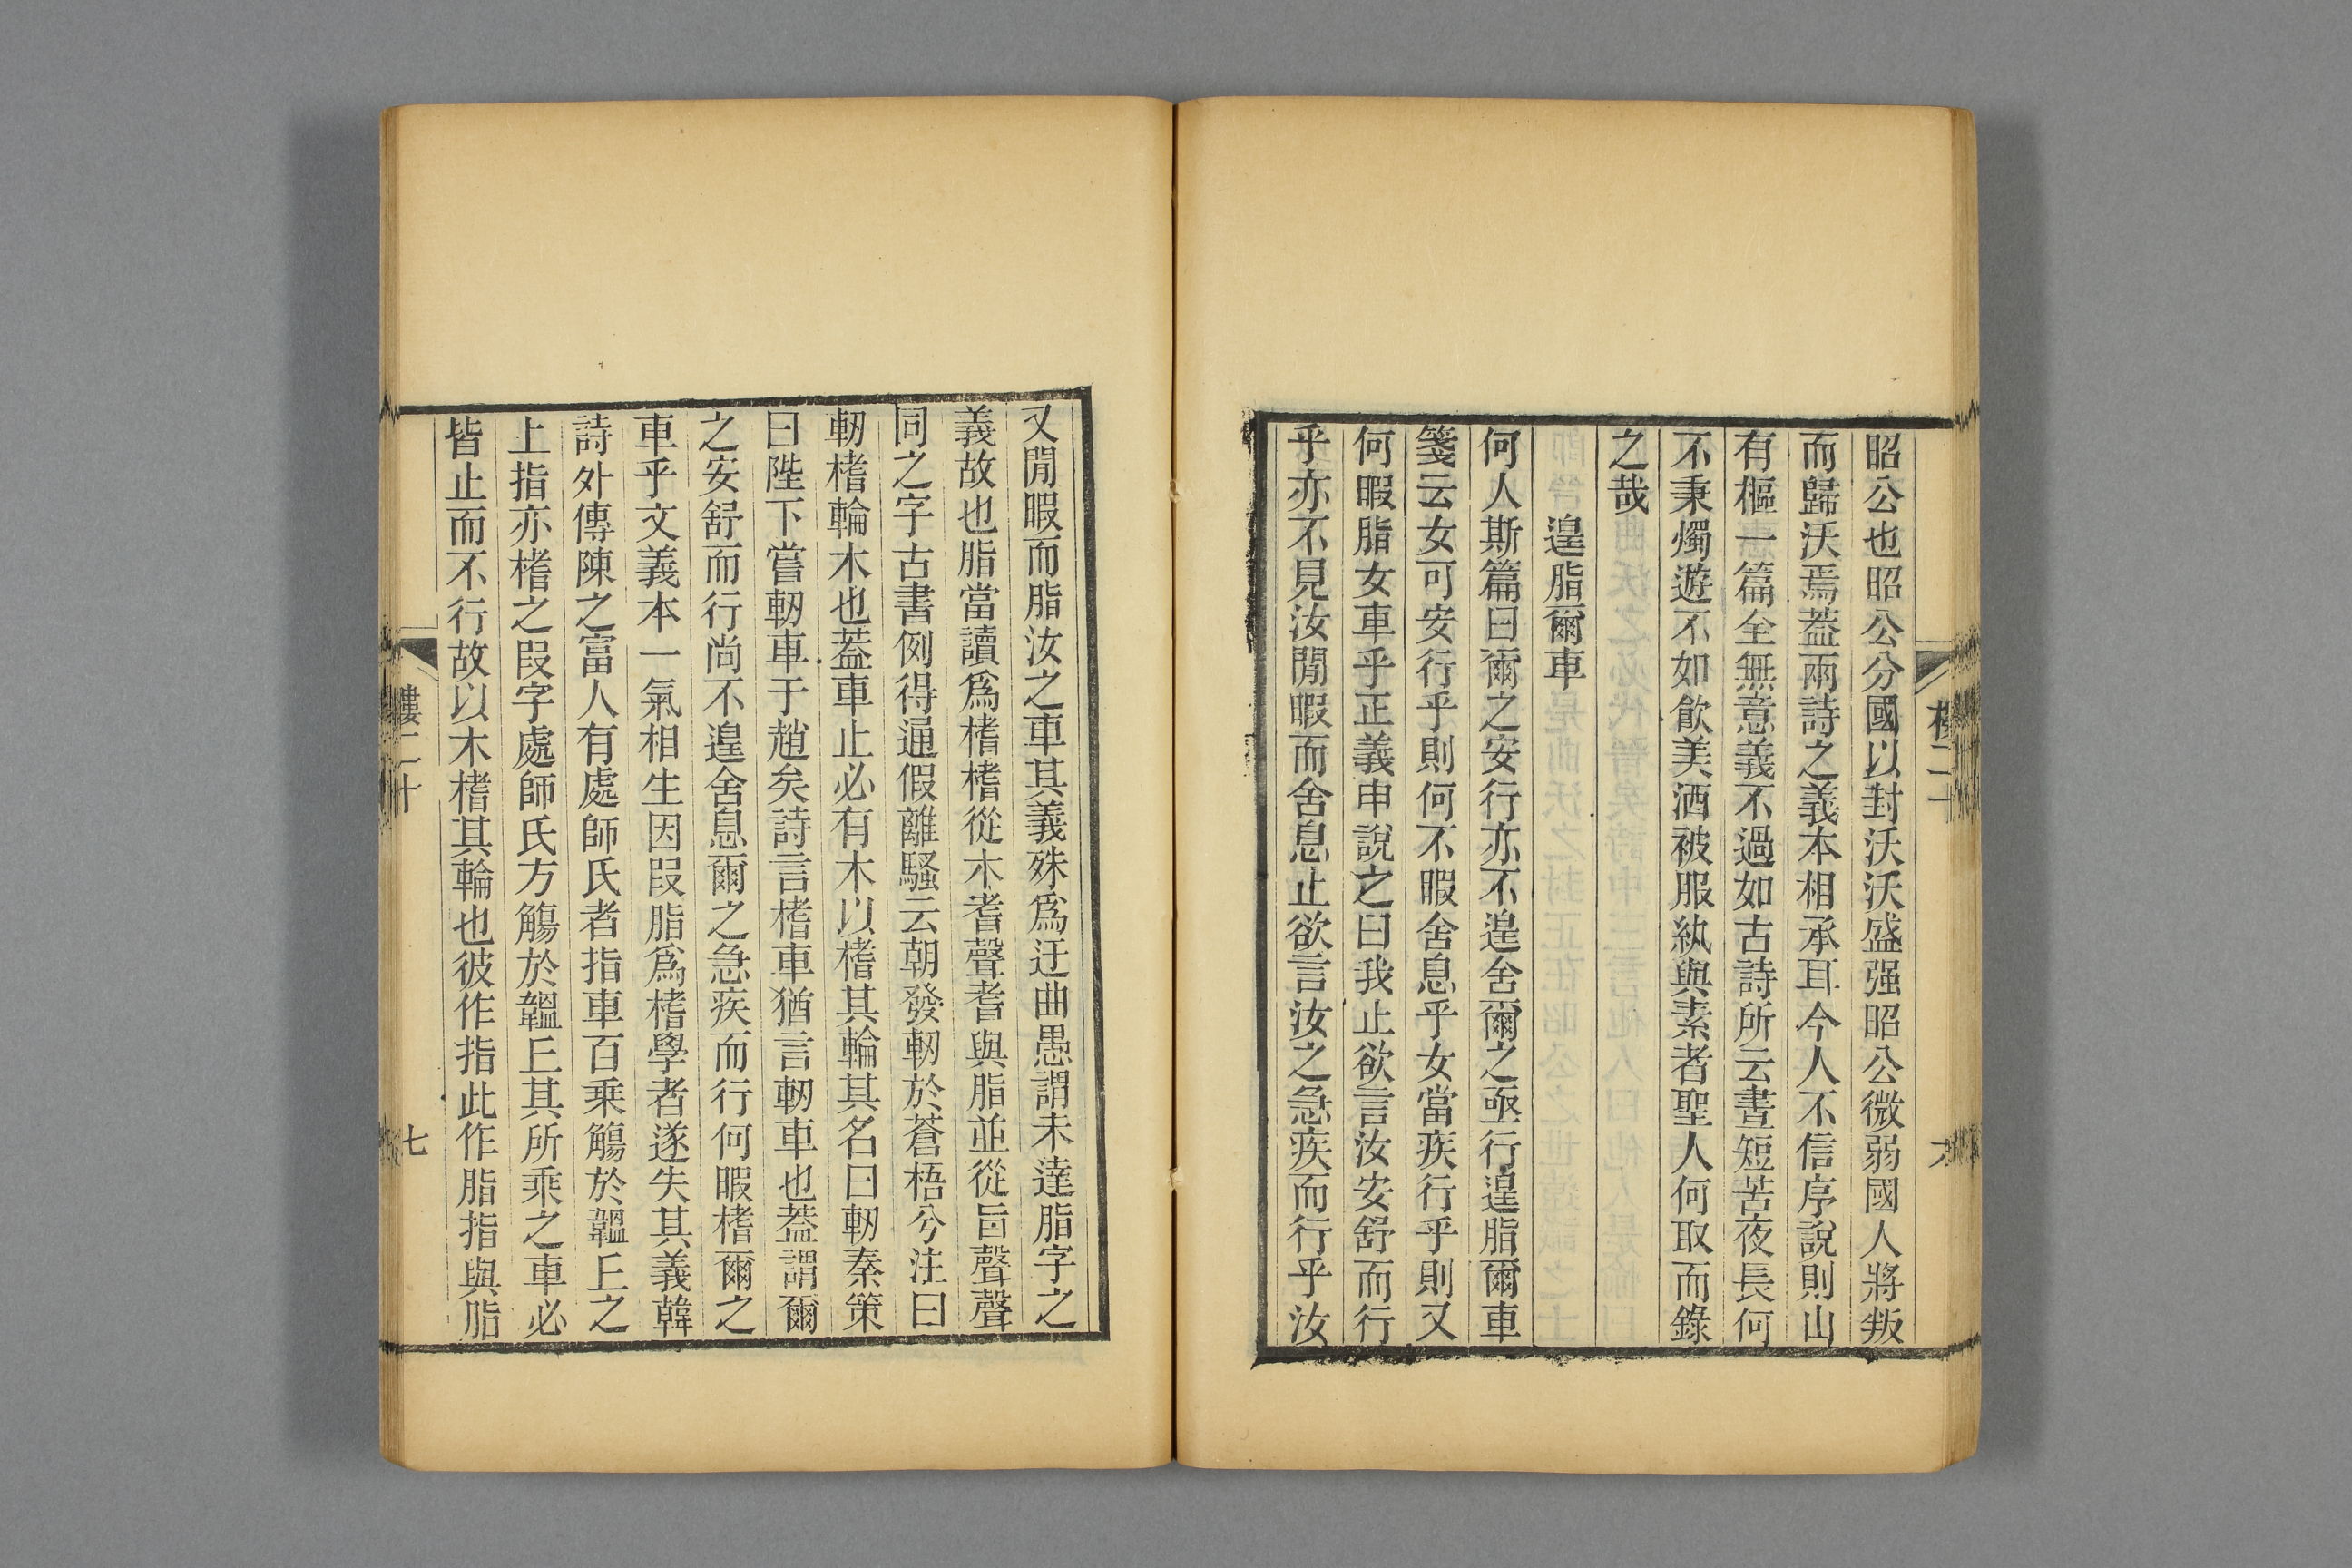 昭公也昭公分國以封沃沃盛强昭公微弱國人將叛
而歸沃焉葢兩詩之義本相承耳今人不信序說則山
有樞一篇全無意義不過如古詩所云晝短苦夜長何
不秉燭遊不如飮美酒被服紈與素者聖人何取而錄
之哉
遑脂爾車
何人斯篇曰爾之安行亦不遑舍爾之亟行遑脂爾車
箋云女可安行乎則何不暇舍息乎女當疾行乎則又
何暇脂女車乎正義申說之曰我止欲言汝安舒而行
乎亦不見汝閒暇而舍息止欲言汝之急疾而行乎汝
又閒暇而脂汝之車其義殊爲迂曲愚謂未達脂字之
義故也脂當讀爲榰榰從木耆聲耆與脂並從旨聲聲
同之字古書例得通假離騷云朝發軔於蒼梧兮注曰
軔榰輪木也葢車止必有木以榰其輪其名曰軔秦策
曰陛下嘗軔車于趙矣詩言榰車猶言軔車也葢謂爾
之安舒而行尚不遑舍息爾之急疾而行何暇榰爾之
車乎文義本一氣相生因叚脂爲榰學者遂失其義韓
詩外傳陳之富人有處師氏者指車百乘觴於韞丘之
上指亦榰之叚字處師氏方觴於韞丘其所乘之車必
皆止而不行故以木榰其輪也彼作指此作脂指與脂
樓二十
七